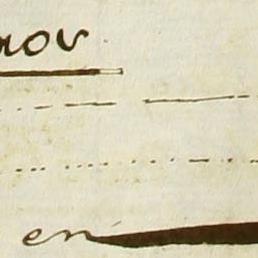 nov
en